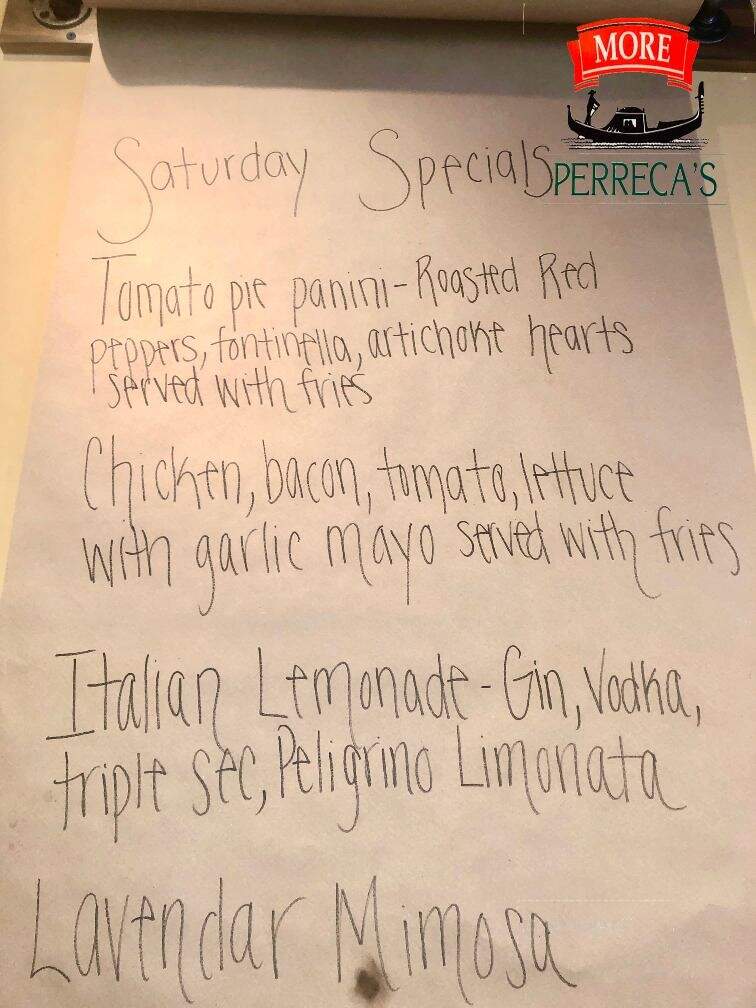 MORE
PERRECA'S
Saturday Specials
Tomato pie panini-Roasted Red
peppers, fontinella, artichoke hearts
served with fries
Chicken, bacon, tomato, lettuce
with garlic mayo served with fries
Italian Lemonade-Gin, Vodka,
triple sec, Peligrino Limonata
Lavendar Mimosa